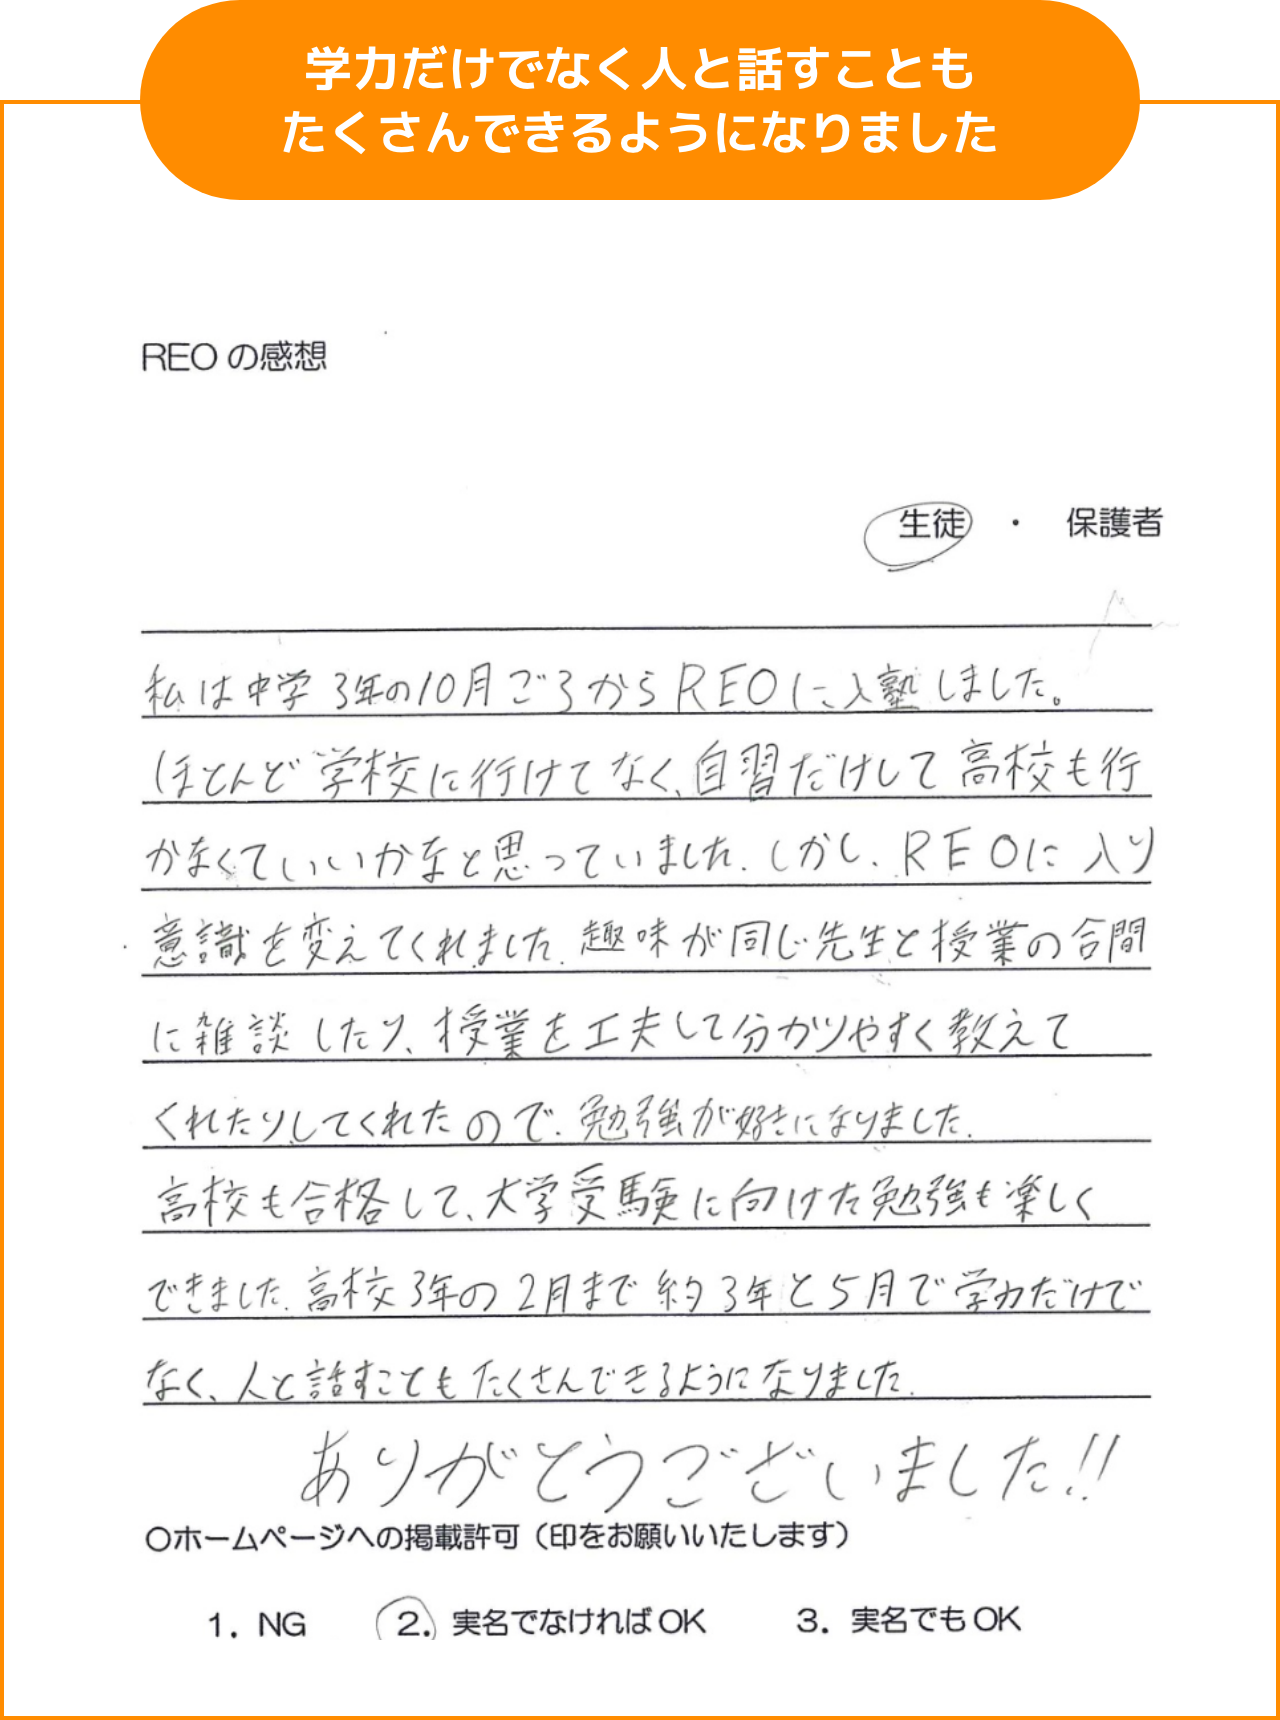 学力だけでなく人と話すことも
たくさんできるようになりました
REOの感想
生徒 ・ 保護者
私は中学3年の10月ごろからREOに入塾しました。
ほとんど学校に行けてなく、自習だけして高校も行
かなくていいかなと思っていました。しかし、REOに入り
意識を変えてくれました。趣味が同じ先生と授業の合間
に雑談したり、授業を工夫して分かりやすく教えて
くれたりしてくれたので、勉強が好きになりました。
高校も合格して、大学受験に向けた勉強も楽しく
できました。高校3年の2月まで約3年と5月で学力だけで
なく、人と話すこともたくさんできるようになりました。
ありがとうございました!!
○ホームページへの掲載許可（印をお願いいたします）
1. NG 2. 実名でなければOK 3. 実名でもOK